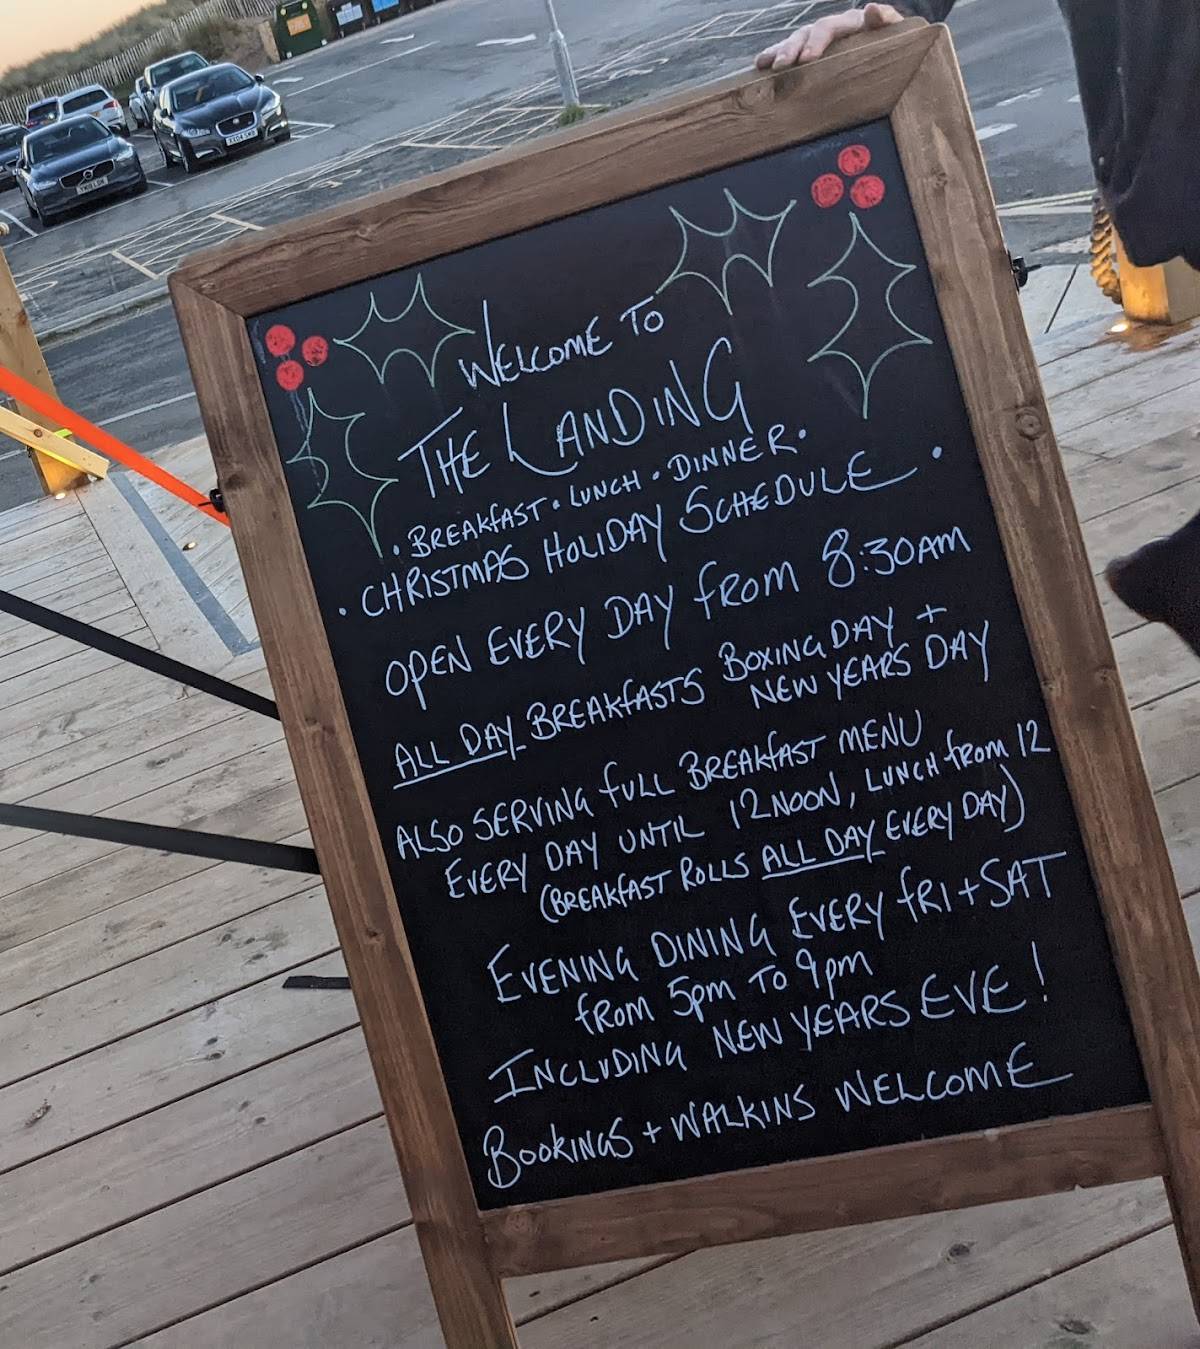 WELCOME TO
THE LANDING
• BREAKFAST • LUNCH • DINNER •
• CHRISTMAS HOLIDAY SCHEDULE •
OPEN EVERY DAY FROM 8:30AM
ALL DAY BREAKFASTS BOXING DAY +
NEW YEARS DAY
ALSO SERVING FULL BREAKFAST MENU
EVERY DAY UNTIL 12 NOON, LUNCH FROM 12
(BREAKFAST ROLLS ALL DAY EVERY DAY)
EVENING DINING EVERY FRI + SAT
FROM 5pm TO 9pm
INCLUDING NEW YEARS EVE!
BOOKINGS + WALKINS WELCOME